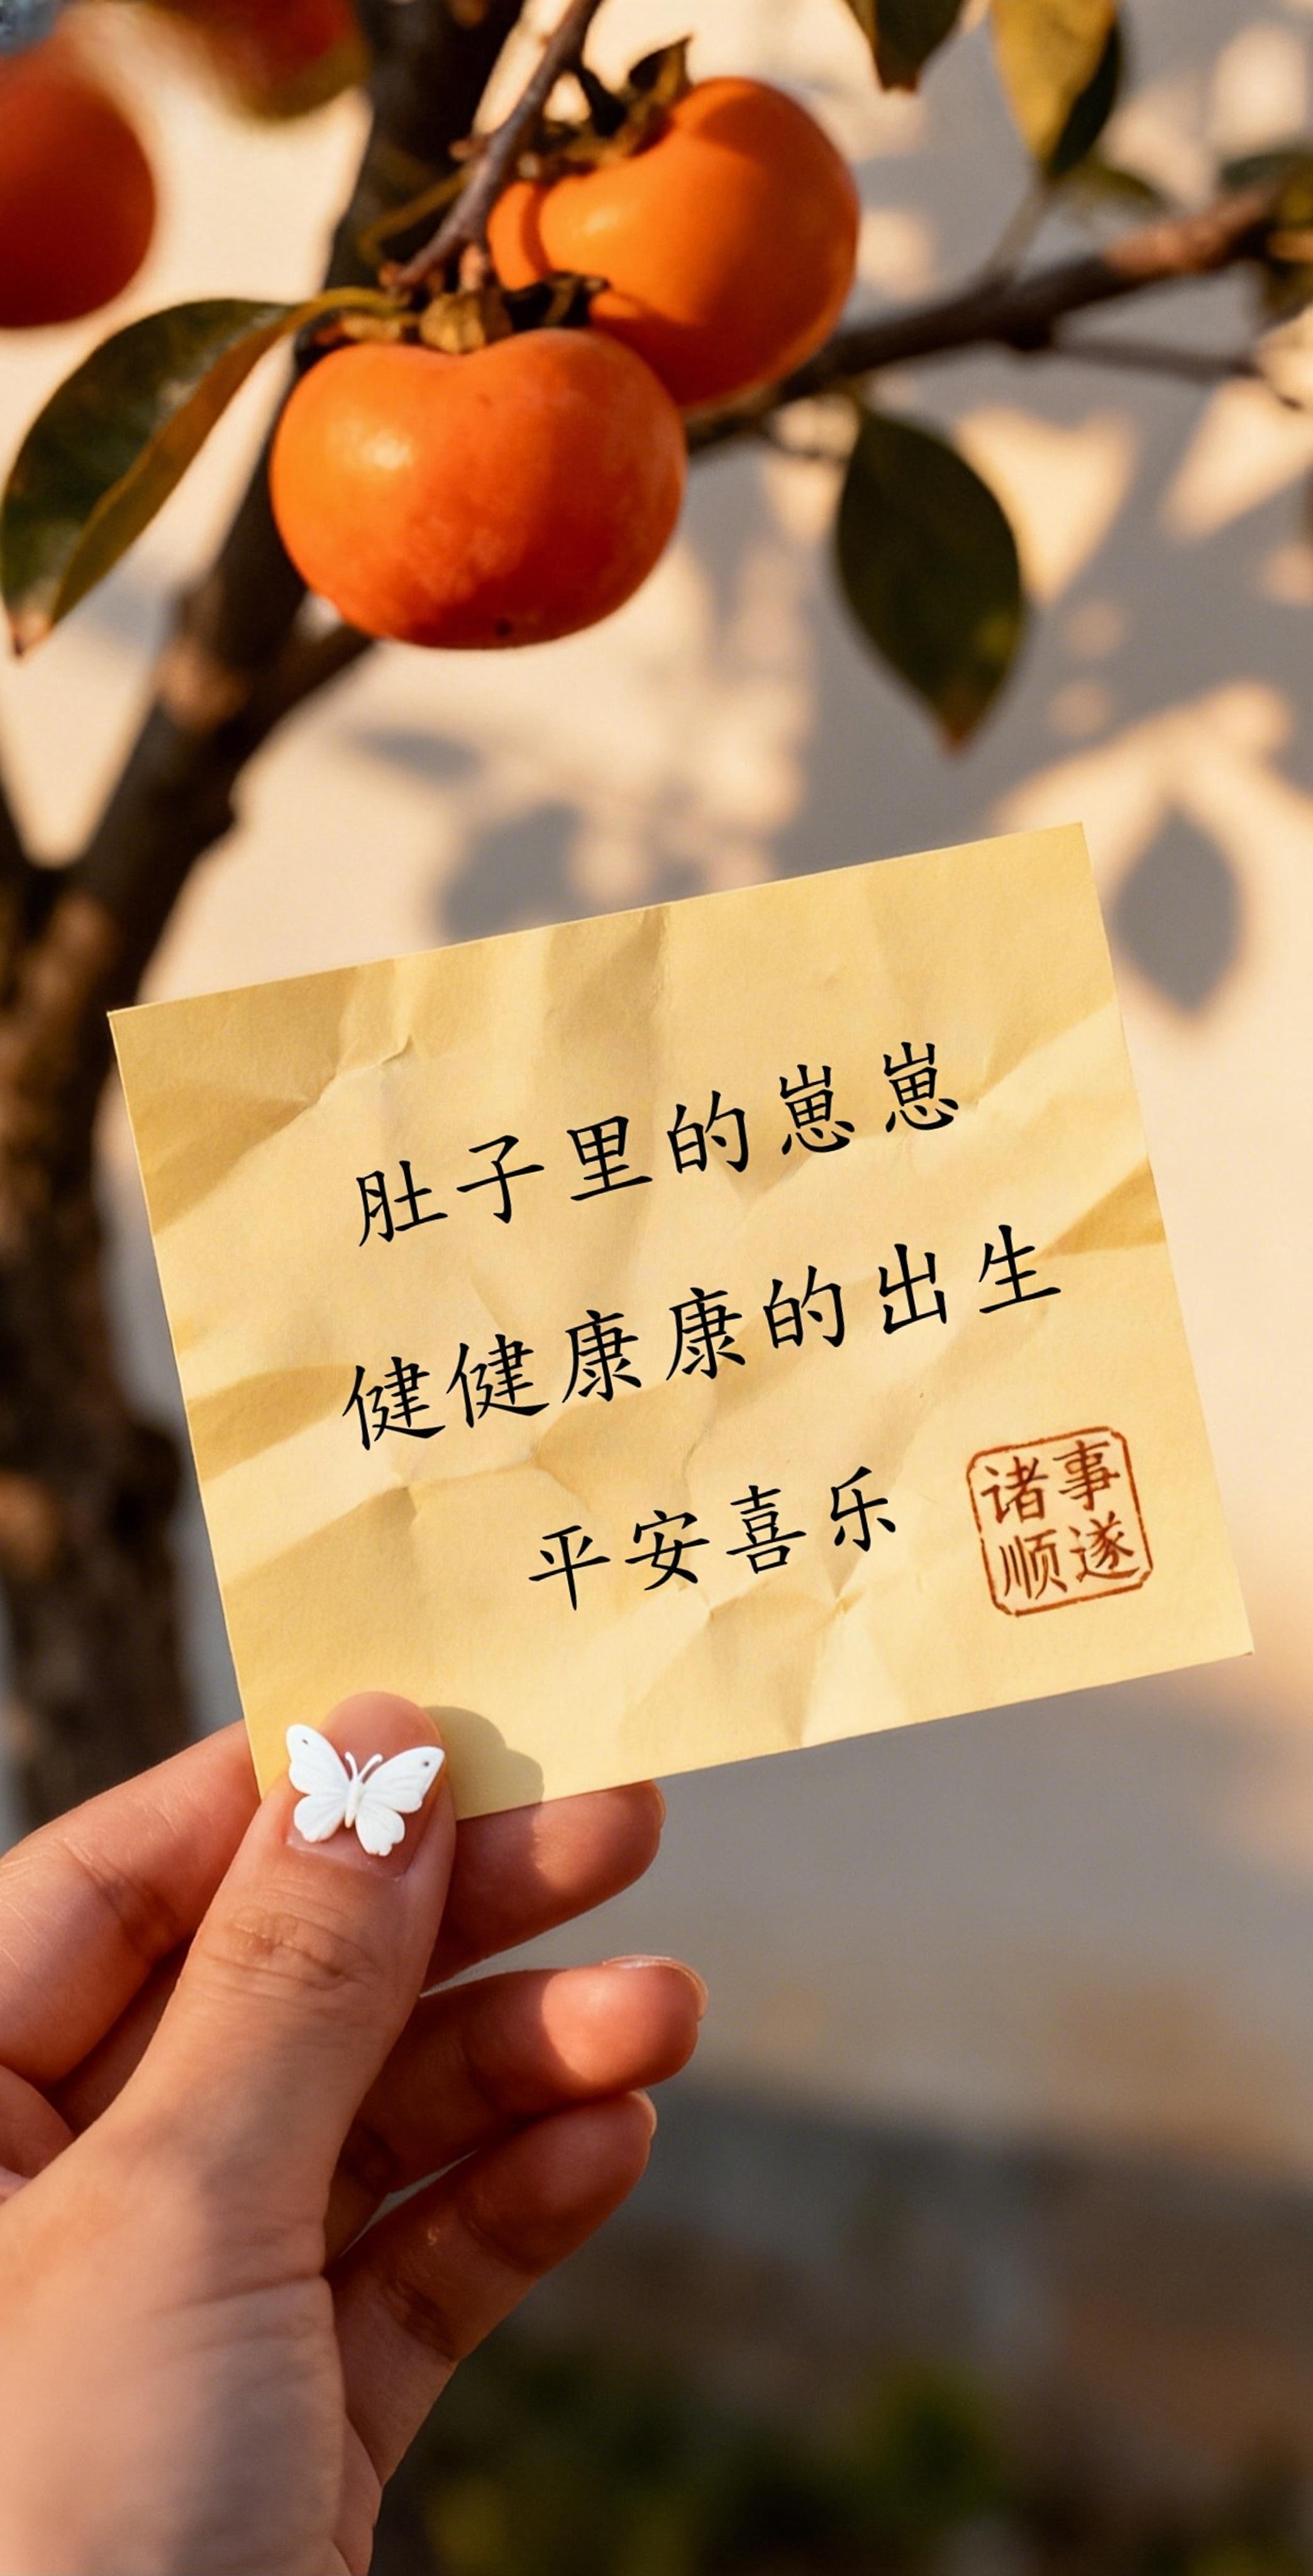 肚子里的崽崽
健健康康的出生
平安喜乐
诸事
顺遂